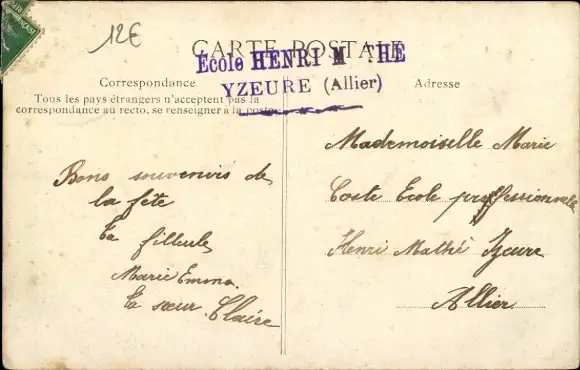 12€
CARTE POSTALE
École HENRI M THE
YZEURE (Allier)
Correspondance
Adresse
Tous les pays étrangers n'acceptent pas la
correspondance au recto, se renseigner à la poste
Bons souvenirs de
la fête
ta filleule
Marie Emma.
ta sœur Claire
Mademoiselle Marie
Coste Ecole professionnelle
Henri Mathé Yzeure
Allier